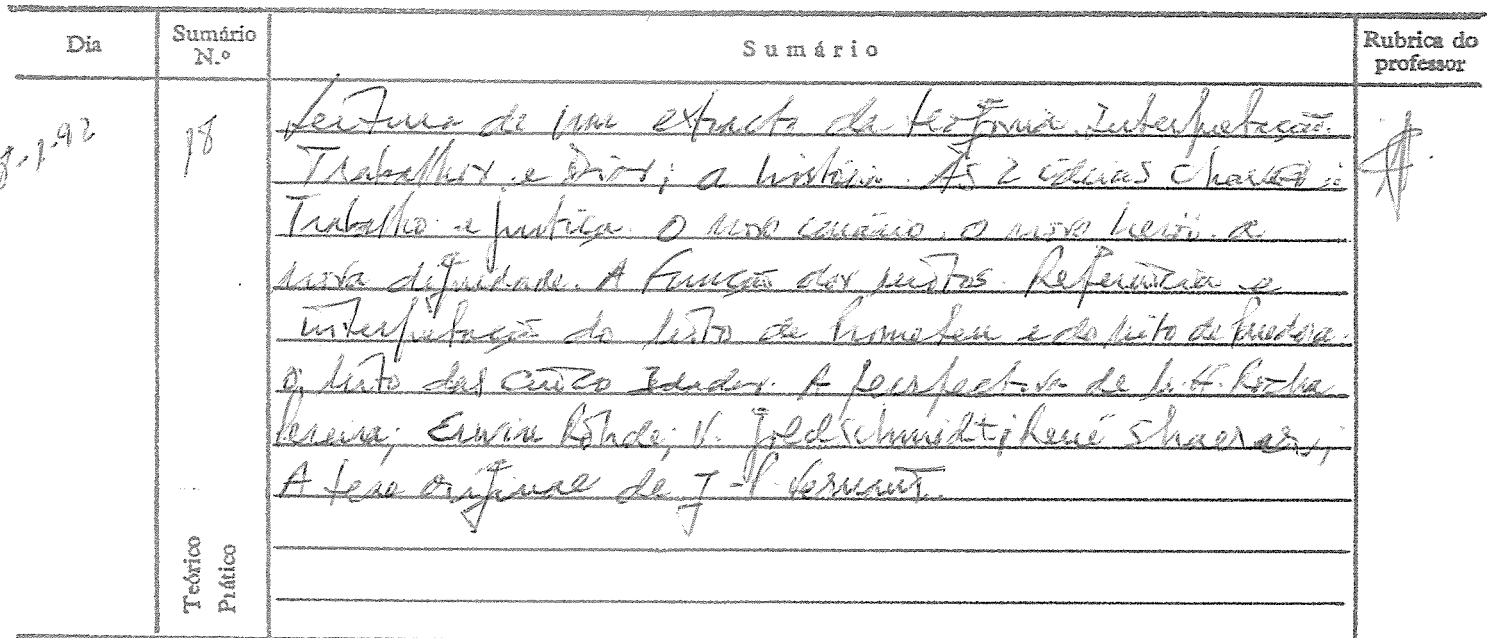 Dia
Sumário N.º
Sumário
Rubrica do professor
8-1-92
18
Leitura de um extracto da teogonia. Interpretação.
Trabalhos e Dias; a história. As 2 ideias chaves:
Trabalho e justiça. O novo cenário. O novo herói. a
nova dignidade. A Função dos mitos. Referência e
interpretação do mito de Prometeu e do mito de Pandora.
O mito das Cinco Idades. A perspectiva de M. H. Rocha
Pereira; Erwin Röhde; V. Goldschmidt; René Shaerer;
A tese original de J-P. Vernant.
Teórico
Prático